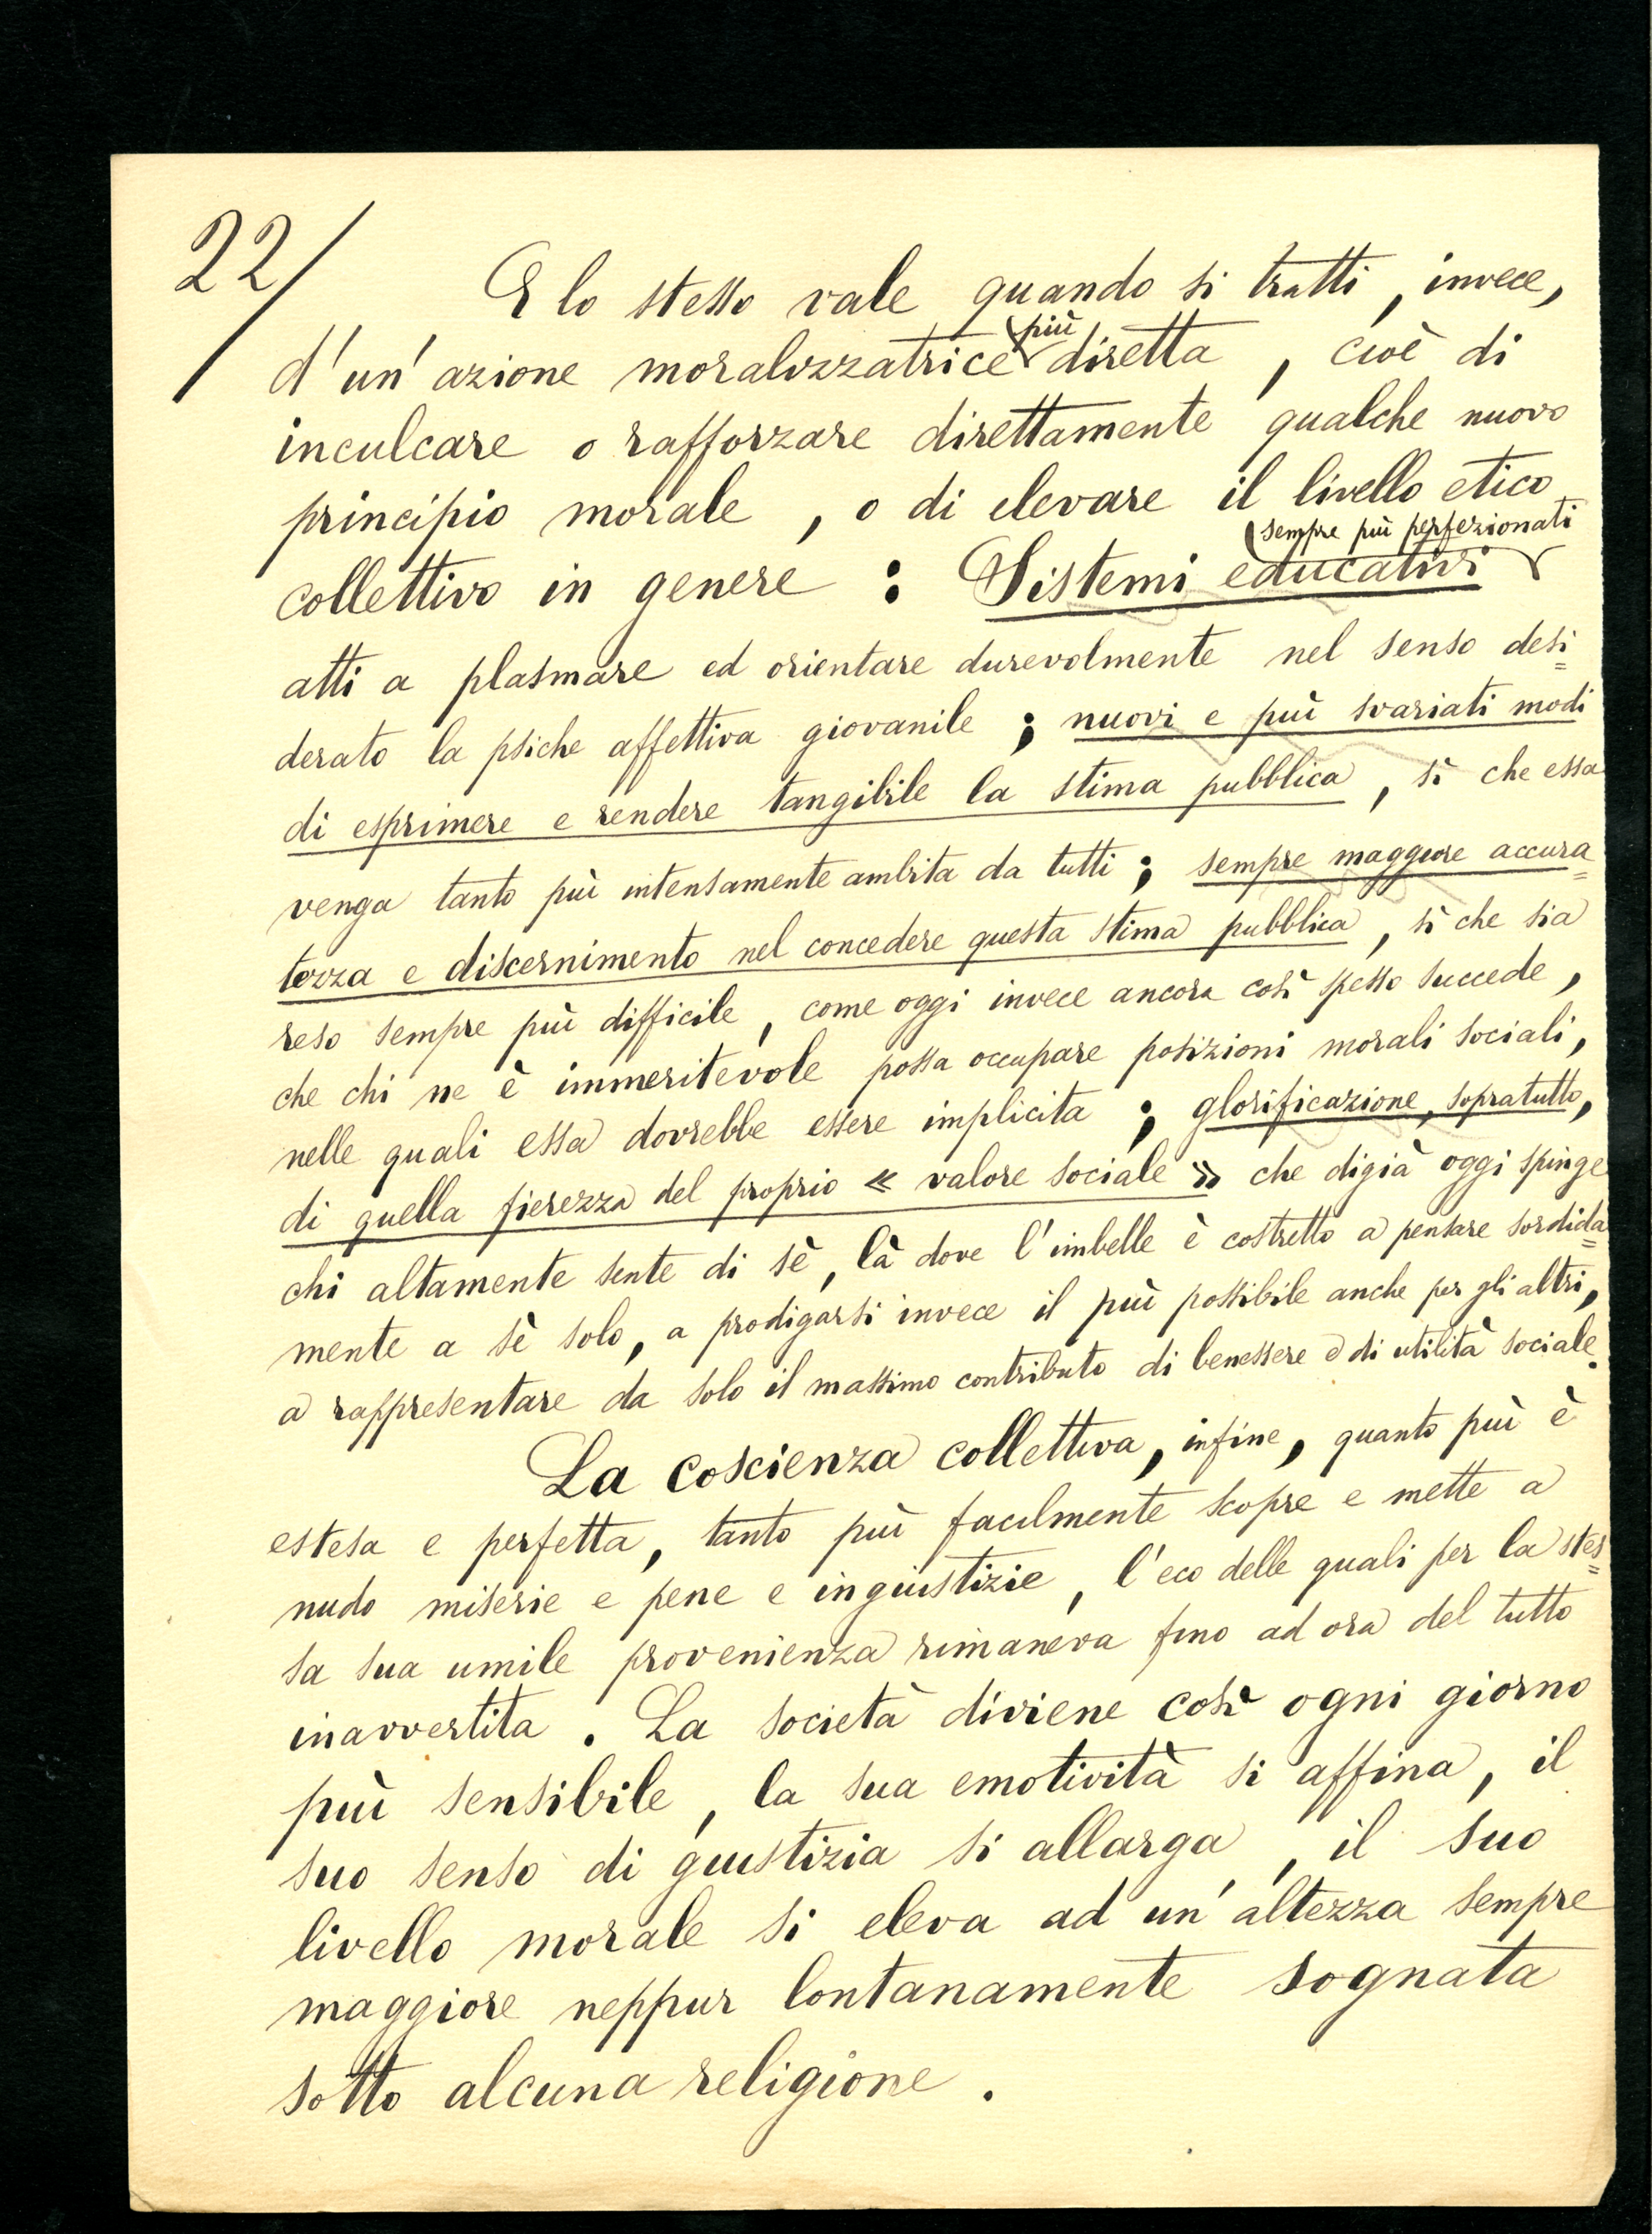 22/
E lo stesso vale quando si tratti, invece,
d'un'azione moralizzatrice più diretta, cioè di
inculcare o rafforzare direttamente qualche nuovo
principio morale, o di elevare il livello etico
collettivo in genere : Sistemi educativi sempre più perfezionati
atti a plasmare ed orientare durevolmente nel senso desi=
derato la psiche affettiva giovanile ; nuovi e più svariati modi
di esprimere e rendere tangibile la stima pubblica, sì che essa
venga tanto più intensamente ambita da tutti ; sempre maggiore accura=
tezza e discernimento nel concedere questa stima pubblica, sì che sia
reso sempre più difficile, come oggi invece ancora così spesso succede,
che chi ne è immeritevole possa occupare posizioni morali sociali,
nelle quali essa dovrebbe essere implicita ; glorificazione, sopratutto,
di quella fierezza del proprio « valore sociale » che digià oggi spinge
chi altamente sente di sè, là dove l'imbelle è costretto a pensare sordida=
mente a sè solo, a prodigarsi invece il più possibile anche per gli altri,
a rappresentare da solo il massimo contributo di benessere e di utilità sociale.
La coscienza collettiva, infine, quanto più è
estesa e perfetta, tanto più facilmente scopre e mette a
nudo miserie e pene e ingiustizie, l'eco delle quali per la stes=
sa sua umile provenienza rimaneva fino ad ora del tutto
inavvertita. La società diviene così ogni giorno
più sensibile, la sua emotività si affina, il
suo senso di giustizia si allarga, il suo
livello morale si eleva ad un'altezza sempre
maggiore neppur lontanamente sognata
sotto alcuna religione.